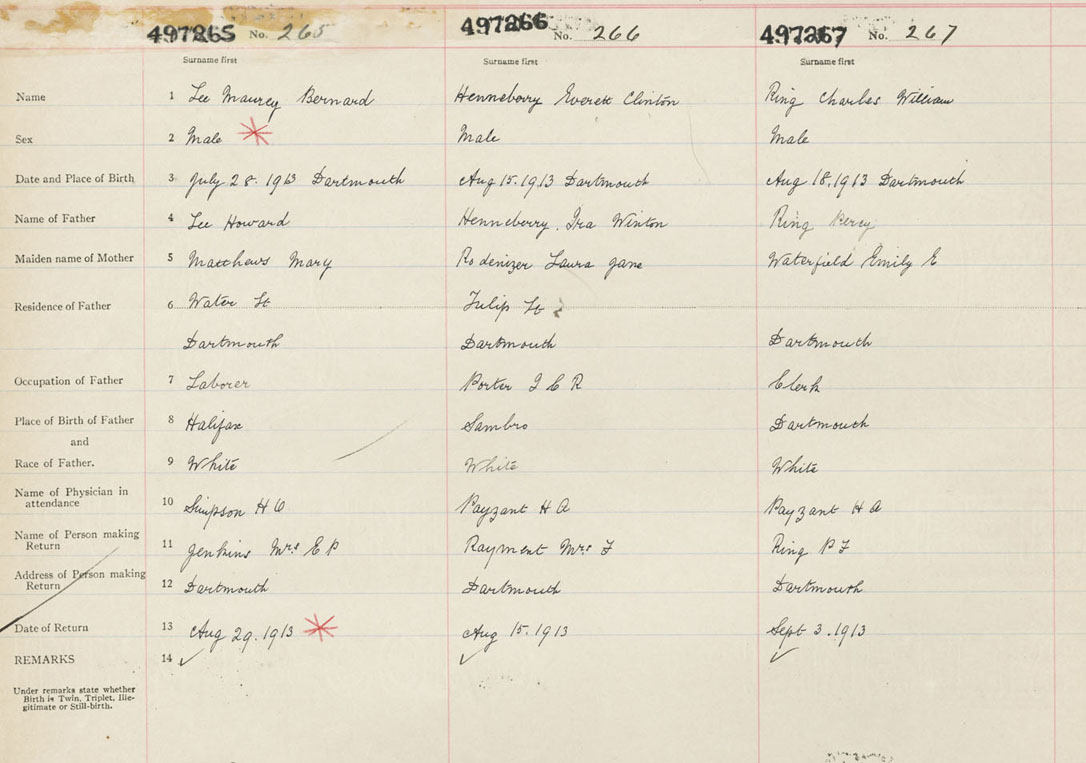 497265 No. 265 497266 No. 266 497267 No. 267
Surname first Surname first Surname first
Name 1 Lee Maurey Bernard Henneberry Everett Clinton Ring Charles William
Sex 2 Male Male Male
Date and Place of Birth 3 July 28. 1913 Dartmouth Aug 15. 1913 Dartmouth Aug 18. 1913 Dartmouth
Name of Father 4 Lee Howard Henneberry. Ira Winton Ring Percy
Maiden name of Mother 5 Matthews Mary Rodenizer Laura Jane Waterfield Emily E
Residence of Father 6 Water St Tulip St
Dartmouth Dartmouth Dartmouth
Occupation of Father 7 Laborer Porter I C R Clerk
Place of Birth of Father 8 Halifax Sambro Dartmouth
and
Race of Father. 9 White White White
Name of Physician in
attendance 10 Simpson H O Payzant H A Payzant H A
Name of Person making
Return 11 Jenkins Mrs E P Rayment Mrs F Ring P F
Address of Person making
Return 12 Dartmouth Dartmouth Dartmouth
Date of Return 13 Aug 29. 1913 Aug 15. 1913 Sept 3. 1913
REMARKS 14 ✓ ✓ ✓
Under remarks state whether
Birth is Twin, Triplet, Ille-
gitimate or Still-birth.